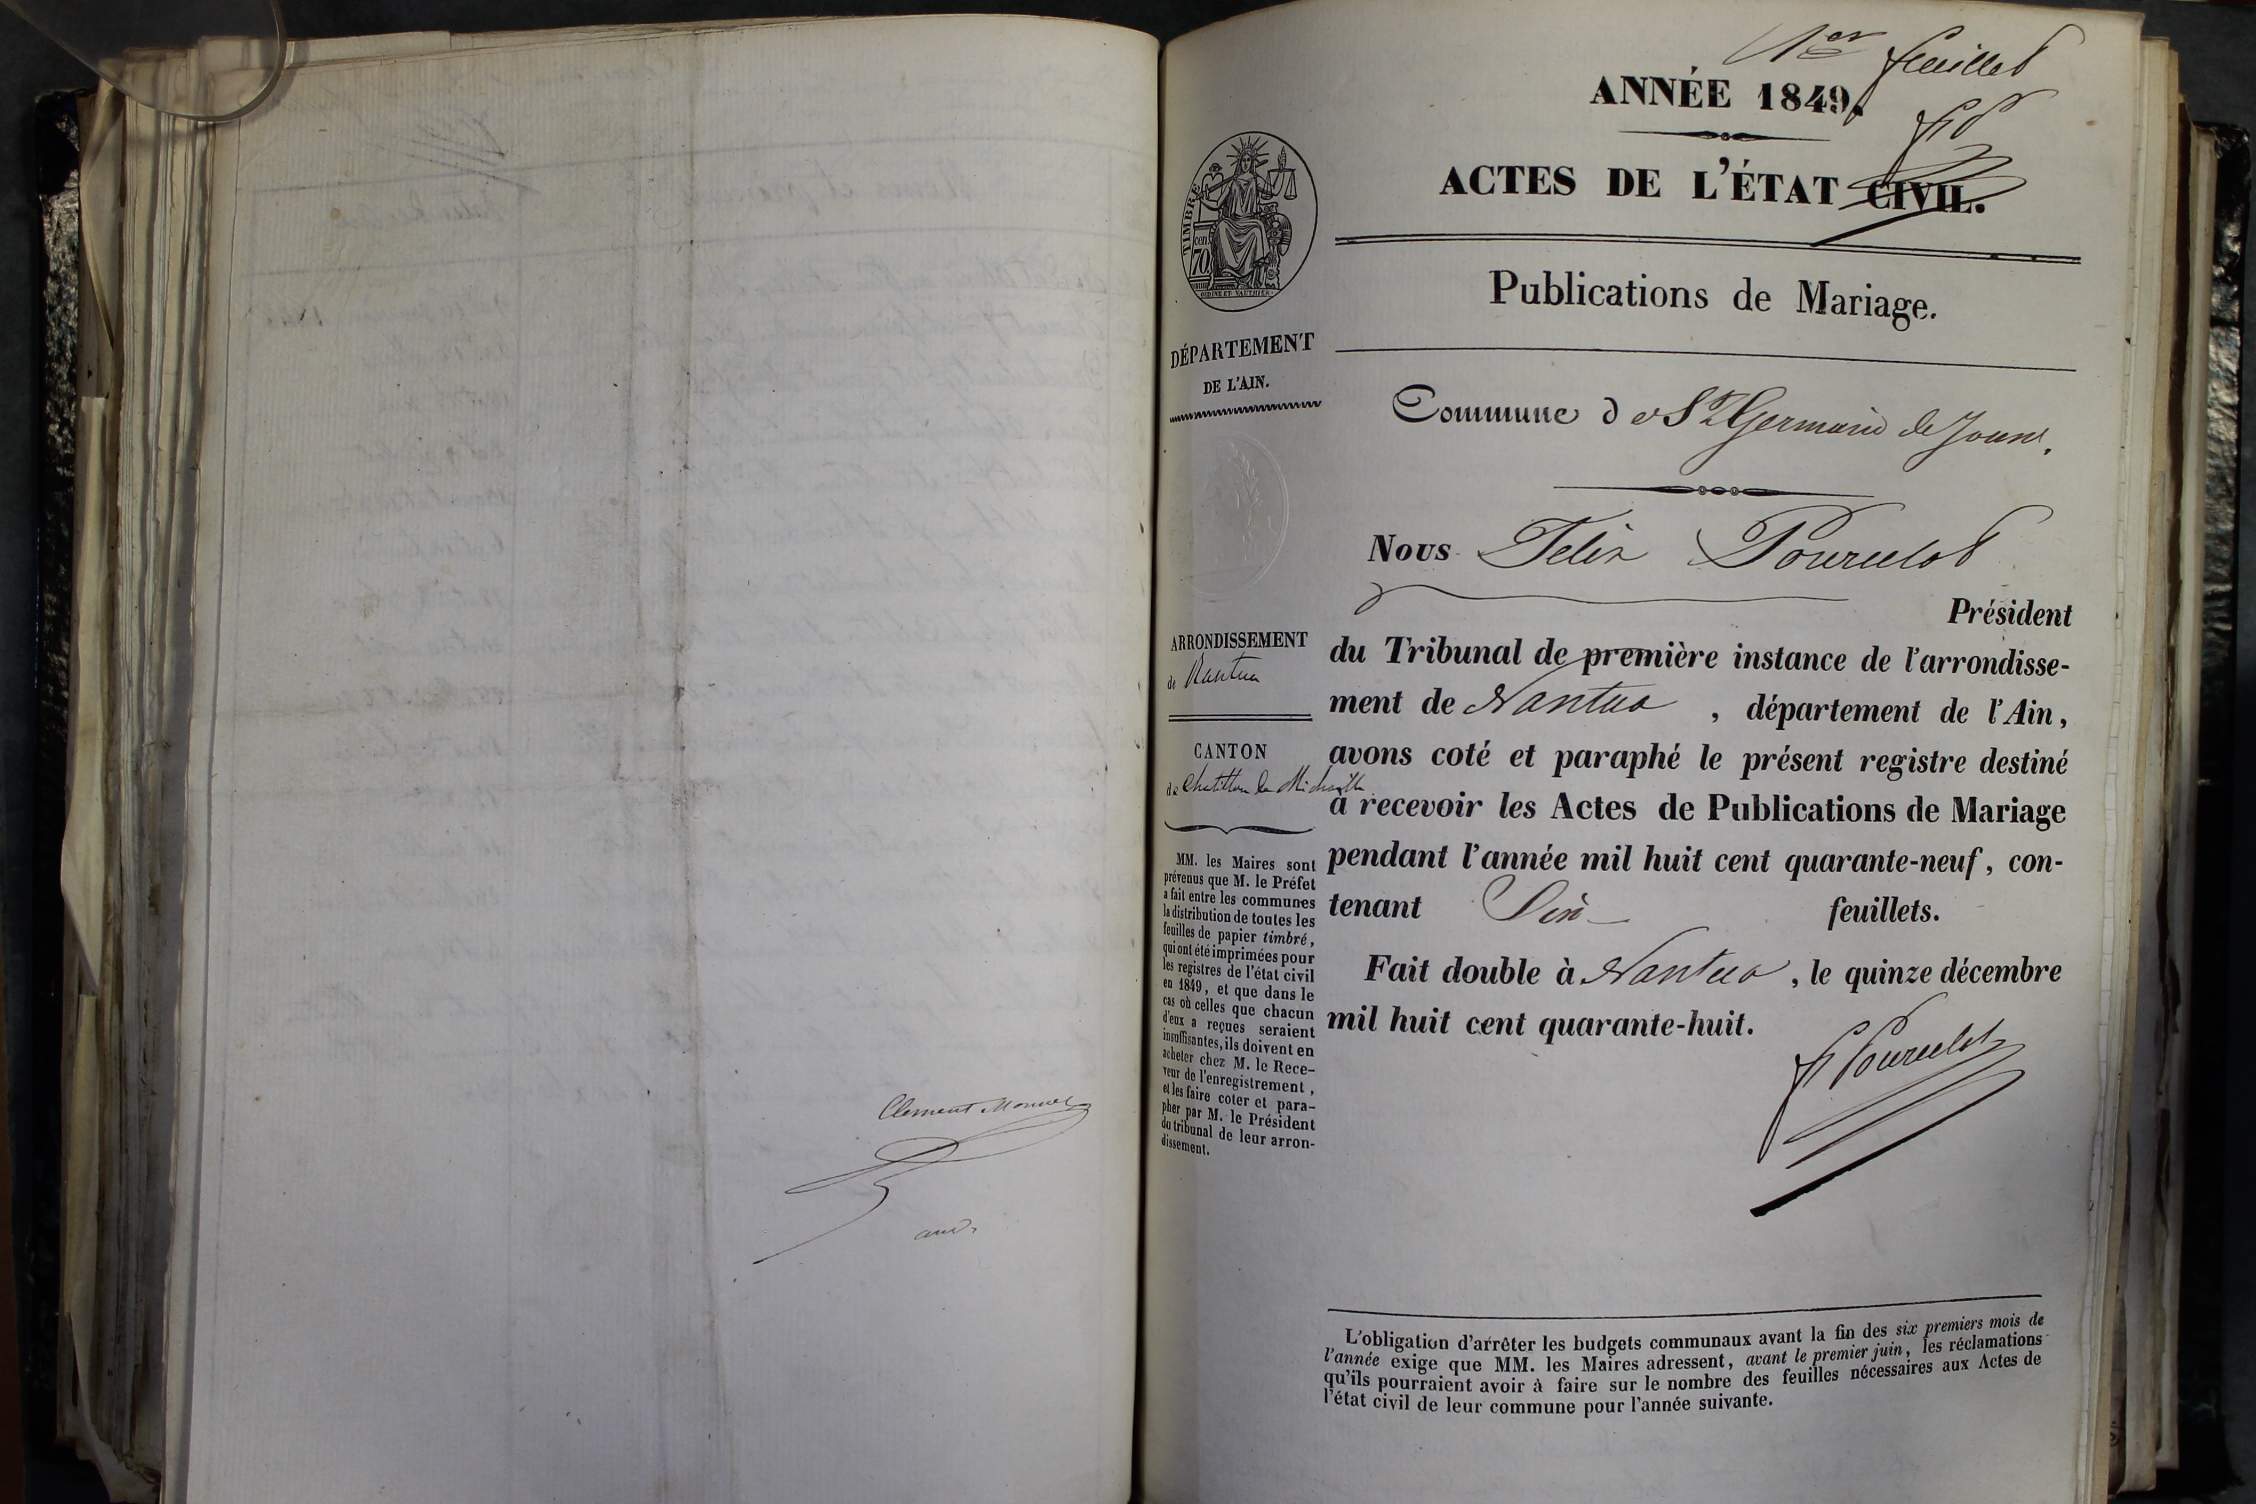 Clement Monnet
1er feuillet
ANNÉE 1849.
ACTES DE L'ÉTAT CIVIL.
Publications de Mariage.
Commune de St Germain de Joux.
Nous Felix Pourcelot
Président
du Tribunal de première instance de l'arrondisse-
ment de Nantua , département de l'Ain,
avons coté et paraphé le présent registre destiné
à recevoir les Actes de Publications de Mariage
pendant l'année mil huit cent quarante-neuf, con-
tenant feuillets.
Fait double à Nantua, le quinze décembre
mil huit cent quarante-huit.
F Pourcelot
TIMBRE
cen.
70
OUDINE ET VAUTHIER
DÉPARTEMENT
DE L'AIN.
ARRONDISSEMENT
de Nantua
CANTON
de Chatillon de Michaille
MM. les Maires sont
prévenus que M. le Préfet
a fait entre les communes
la distribution de toutes les
feuilles de papier timbré,
qui ont été imprimées pour
les registres de l'état civil
en 1849, et que dans le
cas où celles que chacun
d'eux a reçues seraient
insuffisantes, ils doivent en
acheter chez M. le Rece-
veur de l'enregistrement,
et les faire coter et para-
pher par M. le Président
du tribunal de leur arron-
dissement.
L'obligation d'arrêter les budgets communaux avant la fin des six premiers mois de
l'année exige que MM. les Maires adressent, avant le premier juin, les réclamations
qu'ils pourraient avoir à faire sur le nombre des feuilles nécessaires aux Actes de
l'état civil de leur commune pour l'année suivante.